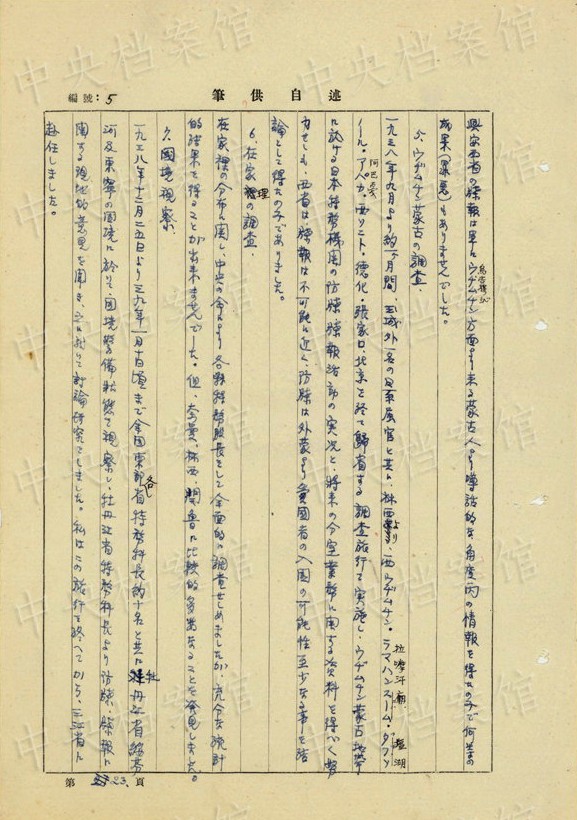 筆供自述
編號：5
興安西省の諜報は単にウヂムチン方面より来る蒙古人より噂話的な角度丙の情報を得たのみで何等の
烏吉穆沁
成果（罪悪）もありませんでした。
5、ウヂムチン蒙古の調査、
一九三八年九月より約一ヶ月間、玉城外一名の日系属官と共に、林西より、西ウヂムチン・ラマハンスーム・ダブス
拉嘛汗廟 塩湖
ノール・アバカ・西ソニト・德化・張家口北京を経て帰省する調査旅行を実施し、ウヂムチン蒙古地帯
阿巴嘎
に於ける日本特務機関の防諜諜報活動の実况と、将来の分室業務に関する資料を得べく努
力せしも、西省は諜報は不可能に近く防諜は外蒙より異國者の入國の可能性至少なる事を結
論として得たのみでありました。
6、在家裡の調査、
理
在家裡の分布に関し、中央の命により各縣特務股長をして全面的に調査せしめましたが、充分な統計
的結果を得ることが出来ませんでした。但、奈曼、林西、開魯に比較的多数あることを発見しました。
7、國境視察、
一九三八年十二月二十五日より三九年一月十日頃まで全国東部各省特務科長約十名と共に牡丹江省綏芬
河及東寧の国境に於いて、国境警備状態を視察し、牡丹江省特務科長より防諜、諜報に
関する現地的意見を聞き、之に於いて討論研究をしました。私はこの旅行を終へてから、三江省に
赴任しました。
第 23 頁
中央档案馆